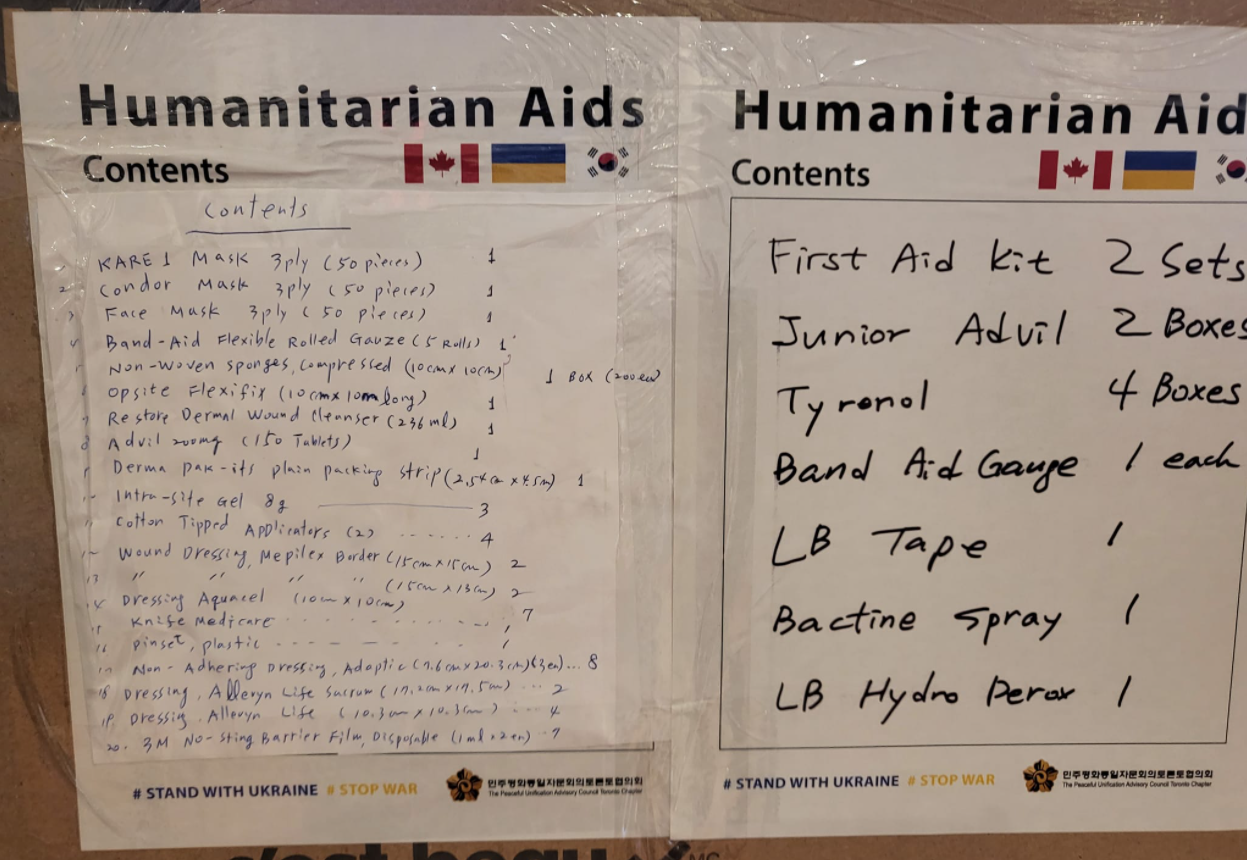 Humanitarian Aids
Contents
Contents
KARE 1 Mask 3ply (50 pieces) 1
2. Condor Mask 3ply (50 pieces) 1
3 Face Mask 3ply (50 pieces) 1
4 Band-Aid Flexible Rolled Gauze (5 Rolls) 1
Non-Woven sponges, compressed (10cm x 10cm) 1 Box (200ea)
Opsite Flexifix (10cm x 10m long) 1
7 Restore Dermal Wound Cleanser (236 ml) 1
8 Advil 200mg (150 Tablets) 1
9 Derma pak-its plain packing strip (2.54cm x 4.5m) 1
Intra-site Gel 8g 3
11 Cotton Tipped Applicators (2) ...... 4
12 Wound Dressing, Mepilex Border (15cm x 15cm) 2
13 " " " " (15cm x 13cm) 2
14 Dressing Aquacel (10cm x 10cm) 7
15 Knife Medicare 1
16 pinset, plastic 1
17 Non-Adhering Dressing, Adaptic (7.6cm x 20.3cm)(3ea)... 8
18 Dressing, Allevyn Life Sacrum (17.2cm x 17.5cm) ... 2
19 Dressing, Allevyn Life (10.3cm x 10.3cm) .... 4
20. 3M No-Sting Barrier Film, Disposable (1ml x 2ea) 7
# STAND WITH UKRAINE # STOP WAR
민주평화통일자문회의토론토협의회
The Peaceful Unification Advisory Council Toronto Chapter
Humanitarian Aid
Contents
First Aid Kit 2 Sets
Junior Advil 2 Boxes
Tyrenol 4 Boxes
Band Aid Gauge 1 each
LB Tape 1
Bactine Spray 1
LB Hydro Perox 1
# STAND WITH UKRAINE # STOP WAR
민주평화통일자문회의토론토협의회
The Peaceful Unification Advisory Council Toronto Chapter